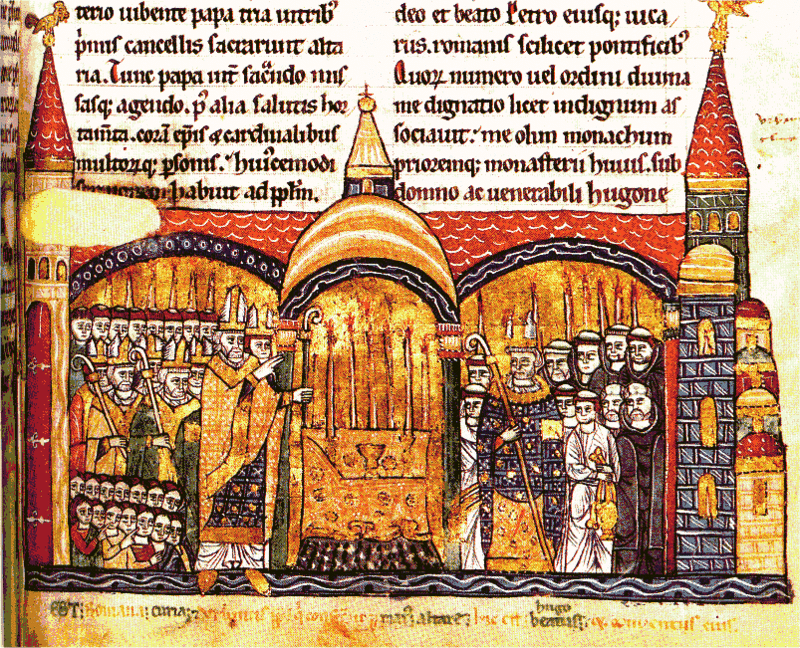 terio uibente papa tria uitrib⁹
p̄mis cancellis sacrarunt alta
ria. Tunc papa int̄ sac̄ndo mis
sasq; agendo. p⁹ alia salutis hor
tam̄ta. corā ep̄is & cardinalibus
multorq; p̄sonis. hui⁹cemodi
habuit ad pp̄lm.
deo et beato Petro eiusq; uica
riis. romanis scilicet pontificib⁹
Quoꝝ numero uel ordini diuina
me dignatio licet indignum as
sociauit. me olim monachum
prioremq; monasterii huius. sub
domno ac uenerabili hugone
EST; Romana; curia; altare; hic est hugo beatiss; & conuentus eius.